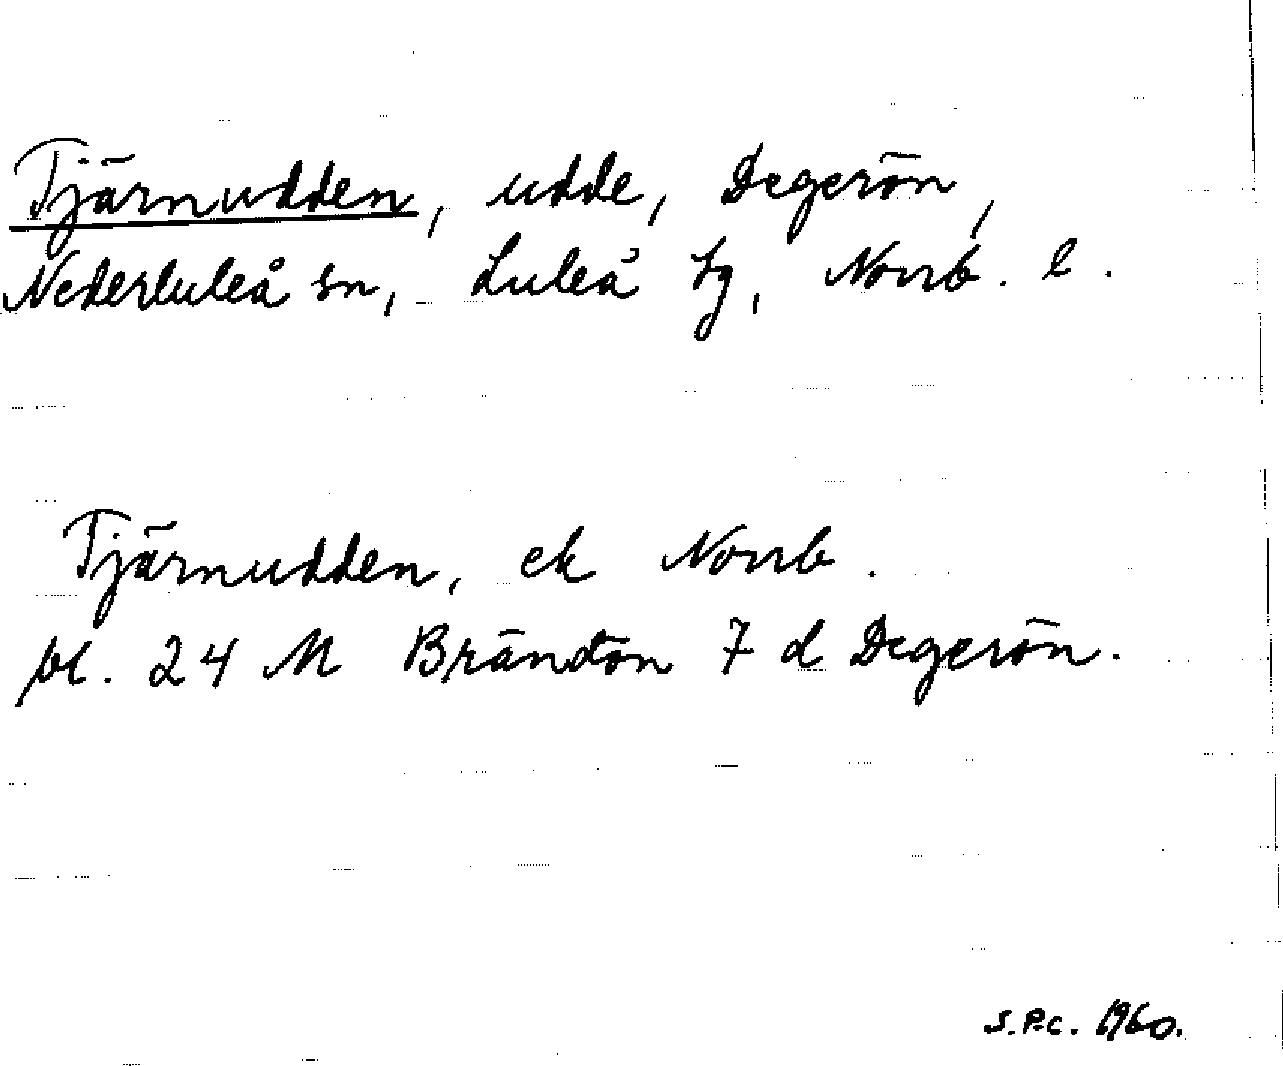 Tjärnudden, udde, Degerön,
Nederluleå sn, Luleå tg, Norrb. l.
Tjärnudden, ek Norrb.
bl. 24 M Brändön 7 d Degerön.
S.P.c. 1960.